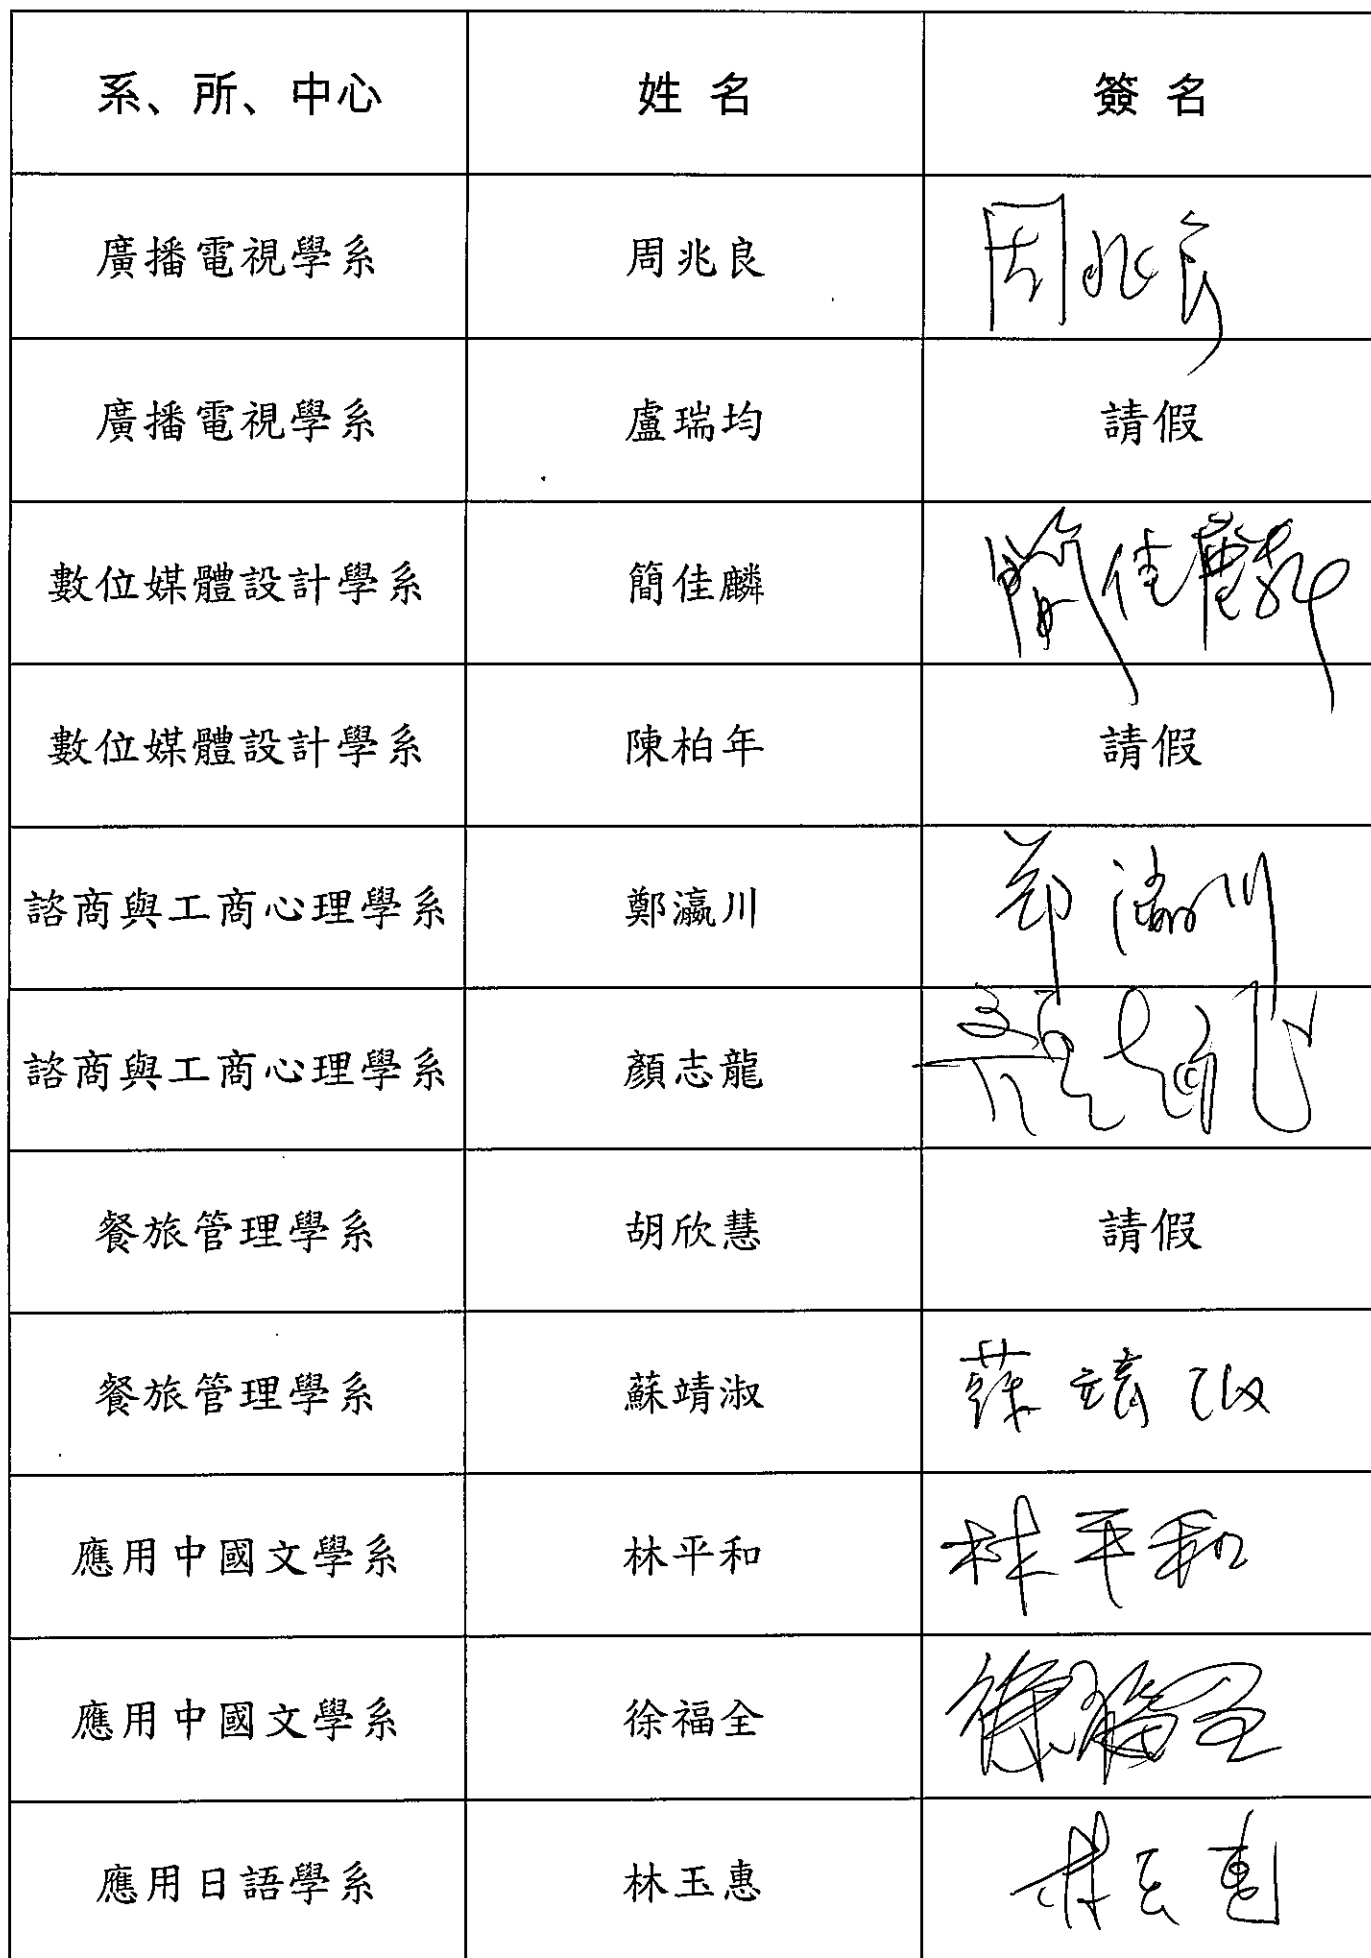 系、所、中心 姓名 簽名
廣播電視學系 周兆良 周兆良
廣播電視學系 盧瑞均 請假
數位媒體設計學系 簡佳麟 簡佳麟
數位媒體設計學系 陳柏年 請假
諮商與工商心理學系 鄭瀛川 鄭瀛川
諮商與工商心理學系 顏志龍 顏志龍
餐旅管理學系 胡欣慧 請假
餐旅管理學系 蘇靖淑 蘇靖淑
應用中國文學系 林平和 林平和
應用中國文學系 徐福全 徐福全
應用日語學系 林玉惠 林玉惠